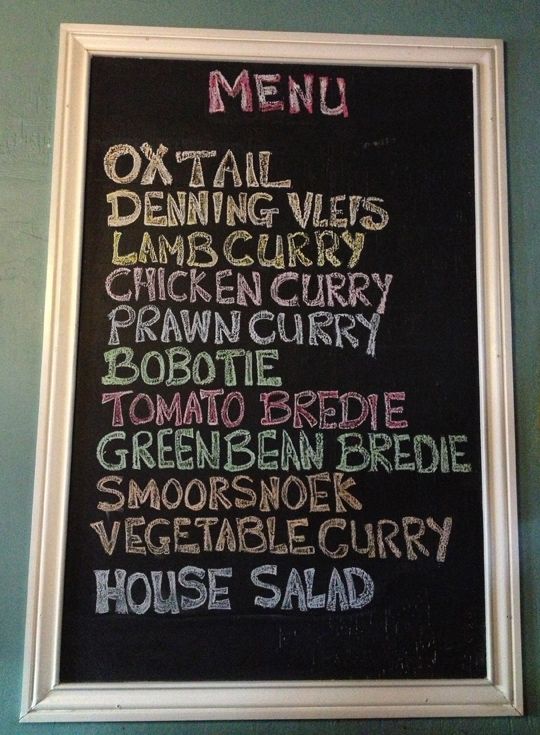 MENU
OXTAIL
DENNING VLEIS
LAMB CURRY
CHICKEN CURRY
PRAWN CURRY
BOBOTIE
TOMATO BREDIE
GREENBEAN BREDIE
SMOORSNOEK
VEGETABLE CURRY
HOUSE SALAD